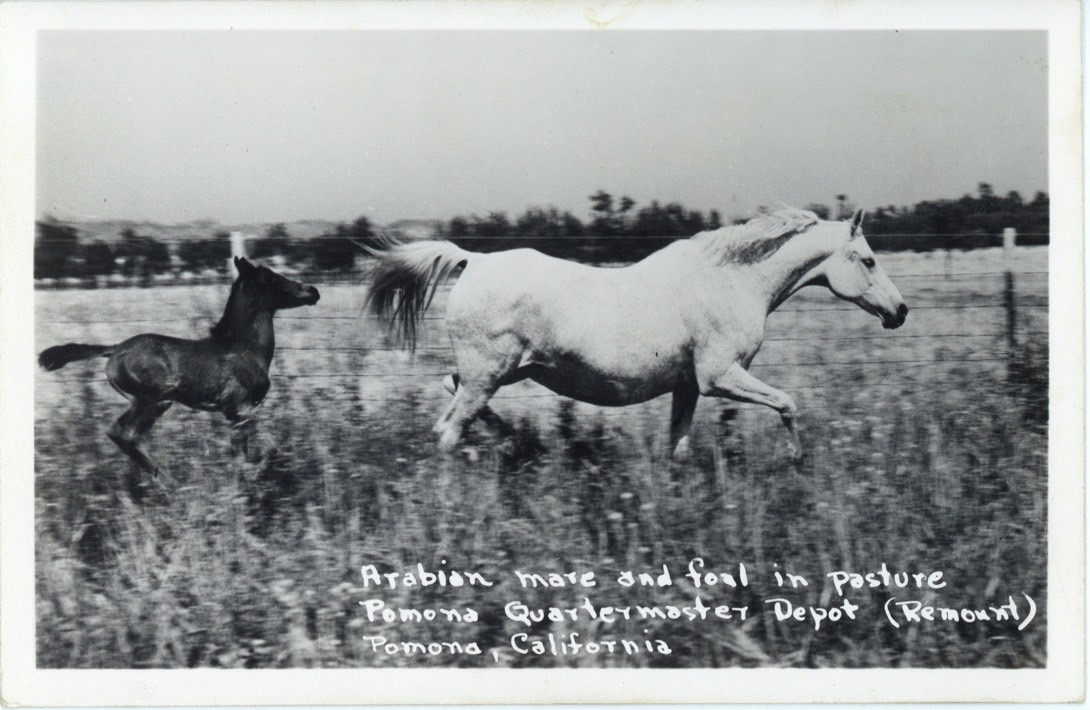 Arabian mare and foal in pasture
Pomona Quartermaster Depot (Remount)
Pomona, California